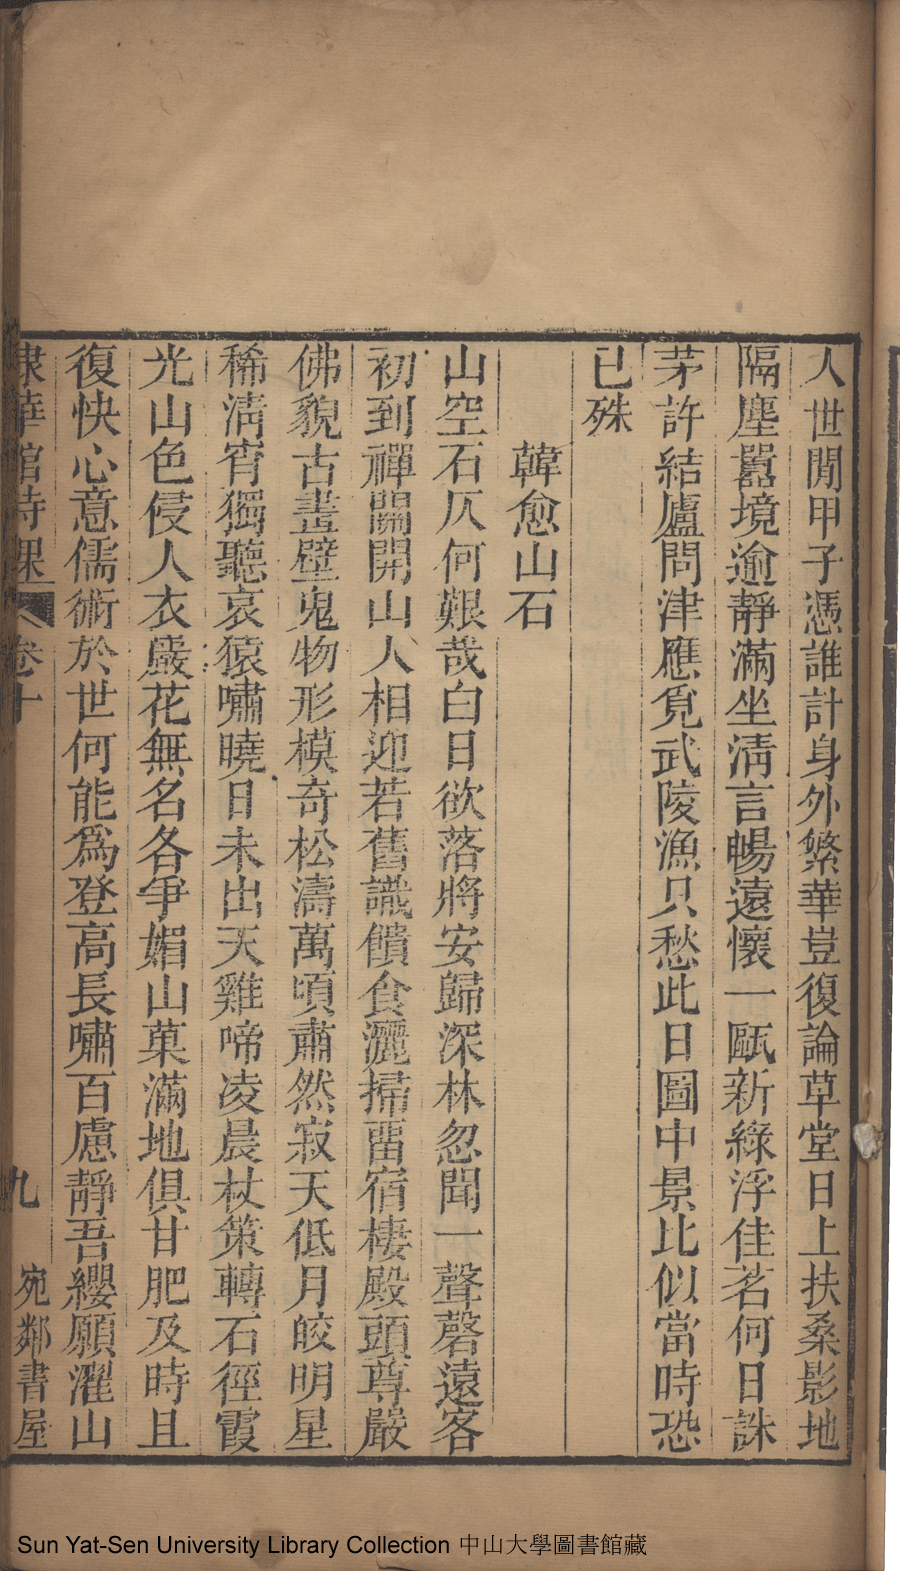 人世閒甲子憑誰計身外繁華豈復論草堂日上扶桑影地
隔塵囂境逾靜滿坐淸言暢遠懷一甌新綠浮佳茗何日誅
茅許結廬問津應覓武陵漁只愁此日圖中景比似當時恐
已殊
韓愈山石
山空石仄何艱哉白日欲落將安歸深林忽聞一聲磬遠客
初到禪關開山人相迎若舊識饋食灑掃畱宿棲殿頭尊嚴
佛貌古畫壁鬼物形模奇松濤萬頃肅然寂天低月皎明星
稀淸宵獨聽哀猿嘯曉日未出天雞啼凌晨杖策轉石徑霞
光山色侵人衣巖花無名各爭媚山菓滿地俱甘肥及時且
復快心意儒術於世何能爲登高長嘯百慮靜吾纓願濯山
棣華館詩課 卷十 九 宛鄰書屋
Sun Yat-Sen University Library Collection 中山大學圖書館藏